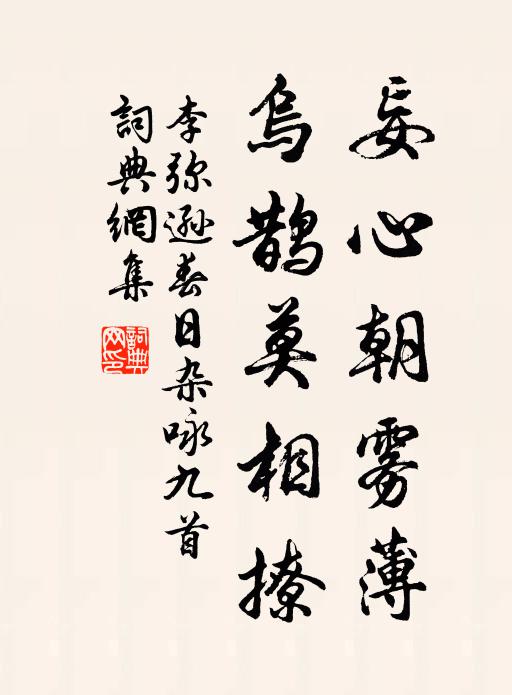 妄心朝雾薄
乌鹊莫相撩
李弥逊春日杂咏九首
詞典網集
詞典网印